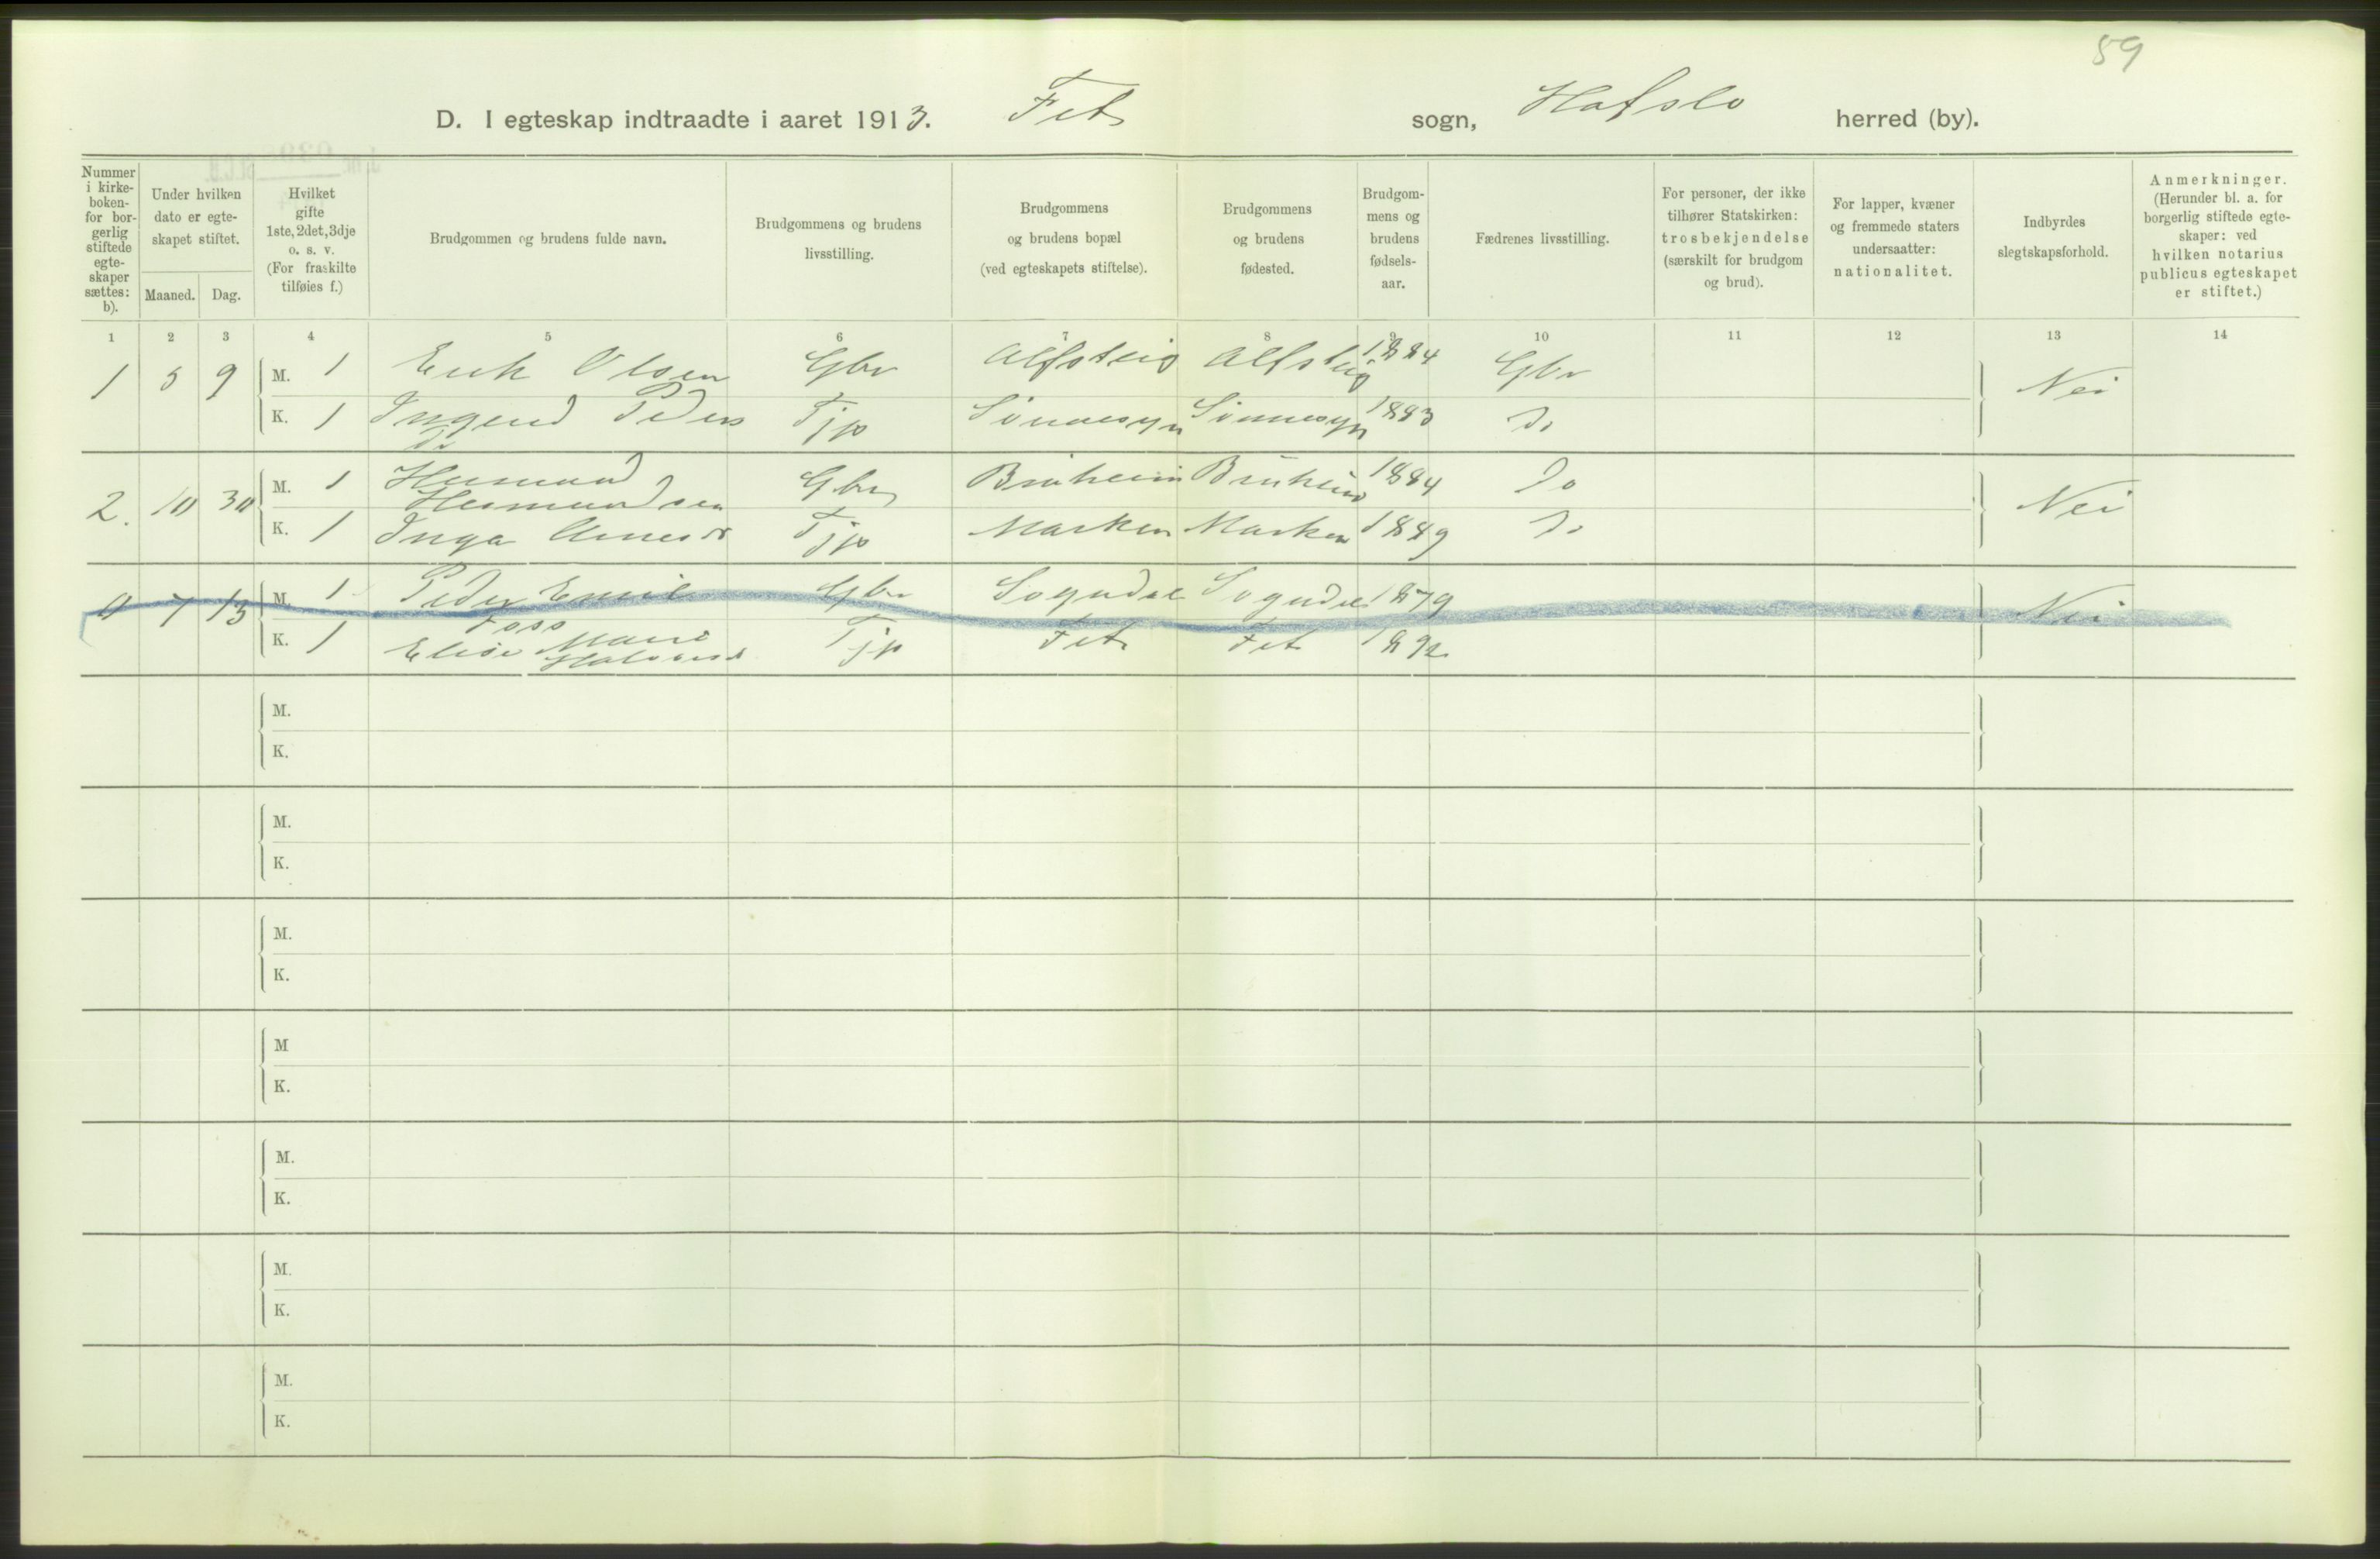 59
D. I egteskap indtraadte i aaret 1913. Fet sogn, Hafslo herred (by).
Nummer i kirke- boken- for bor- gerlig stiftede egte- skaper sættes: b).
Under hvilken dato er egte- skapet stiftet.
Maaned. Dag.
Hvilket gifte 1ste, 2det, 3dje o. s. v. (For fraskilte tilføies f.)
Brudgommen og brudens fulde navn.
Brudgommens og brudens livsstilling.
Brudgommens og brudens bopæl (ved egteskapets stiftelse).
Brudgommens og brudens fødested.
Brudgom- mens og brudens fødsels- aar.
Fædrenes livsstilling.
For personer, der ikke tilhører Statskirken: trosbekjendelse (særskilt for brudgom og brud).
For lapper, kvæner og fremmede staters undersaatter: nationalitet.
Indbyrdes slegtskapsforhold.
Anmerkninger. (Herunder bl. a. for borgerlig stiftede egte- skaper: ved hvilken notarius publicus egteskapet er stiftet.)
1 2 3 4 5 6 7 8 9 10 11 12 13 14
1 5 9 M. 1 Erik Olsen Gbr Alfsteig Alfsteig 1884 Gbr Nei
K. 1 Ingerid Peders dr Tjp Sønnesyn Sønnesyn 1883 Do
2. 10 30 M. 1 Hermund Hermundsen Gbr Bruheim Bruheim 1884 Do Nei
K. 1 Inga Arnesd Tjp Marken Marken 1889 Do
0 7 13 M. 1 Peder Emil Foss Gbr Sogndal Sogndal 1879 Nei
K. 1 Elise Marie Halvorsd Tjp Fet Fet 1892
M.
K.
M.
K.
M.
K.
M
K.
M.
K.
M.
K.
M.
K.